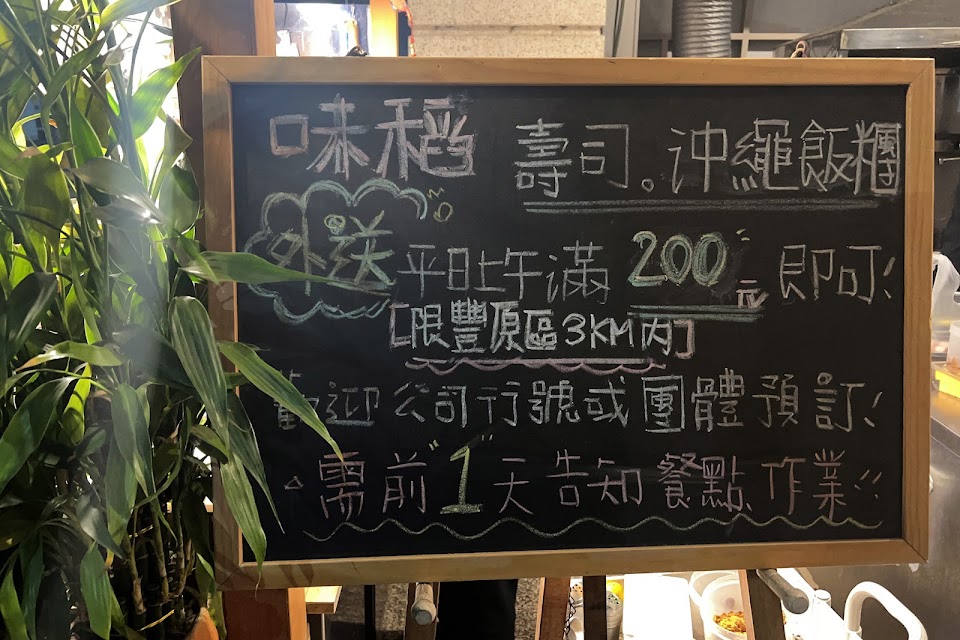 味稻 壽司。沖繩飯糰
外送 平日上午滿 200元 即可!
[限豐原區3KM內]
歡迎公司行號或團體預訂!
△需前"1"天告知餐點作業!!